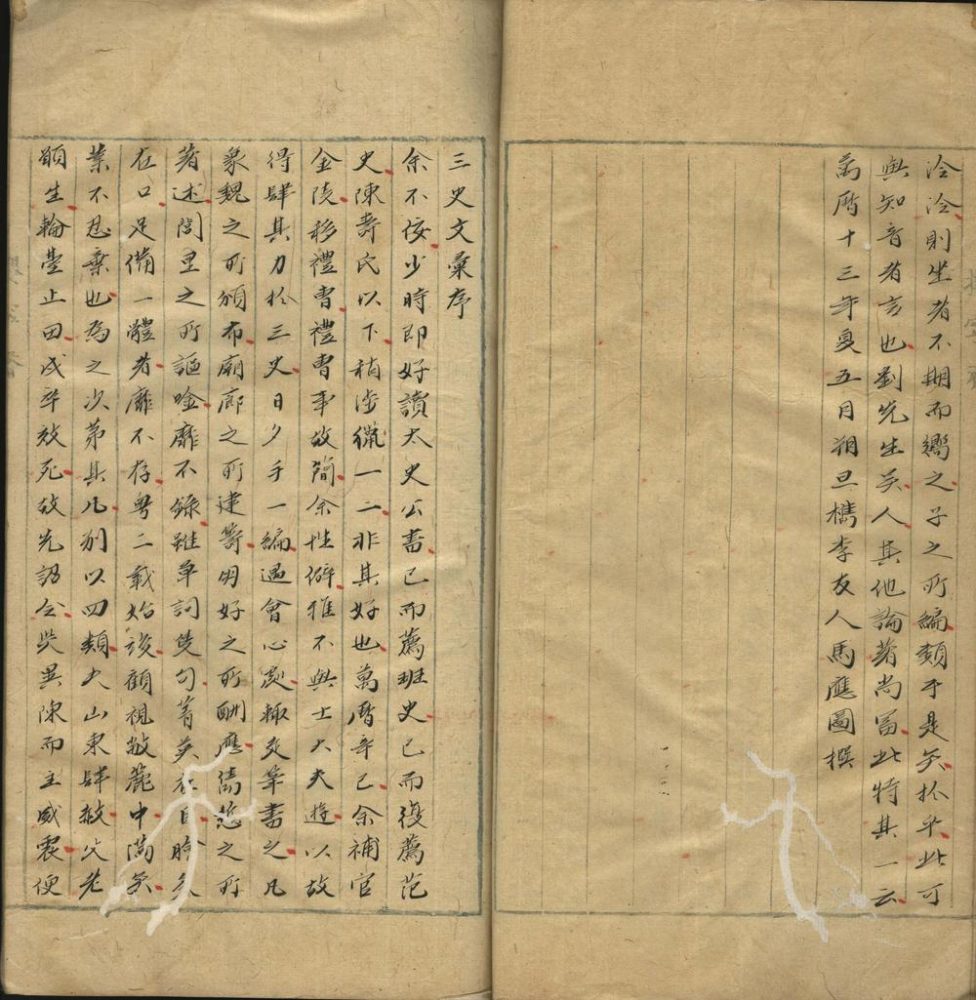 泠泠則坐者不期而嚮之子之所編類于是矣於乎此可
與知音者言也劉先生吴人其他論著尚富此特其一云
萬曆十三年夏五月朔旦檇李友人馬應圖撰
三史文彙序
余不佞少時即好讀太史公書已而薦班史已而復薦范
史陳壽氏以下稍涉獵一二非其好也萬曆辛巳余補官
金陵移禮曹禮曹事故簡余性僻雅不與士大夫遊以故
得肆其力於三史日夕手一編過會心處輙爰筆書之凡
象魏之所頒布廟廊之所建籌朋好之所酬應儔
之所
著述閭里之所謳唫靡不錄雖單詞隻句菁英在目膾炙
在口足備一體者靡不存粤二載始竣顧視敝簏中滿矣
業不忍棄也為之次第其凡別以四類大山東肆赦父老
頥生輪臺止田戍卒效死故先詔令災異陳而主威震便